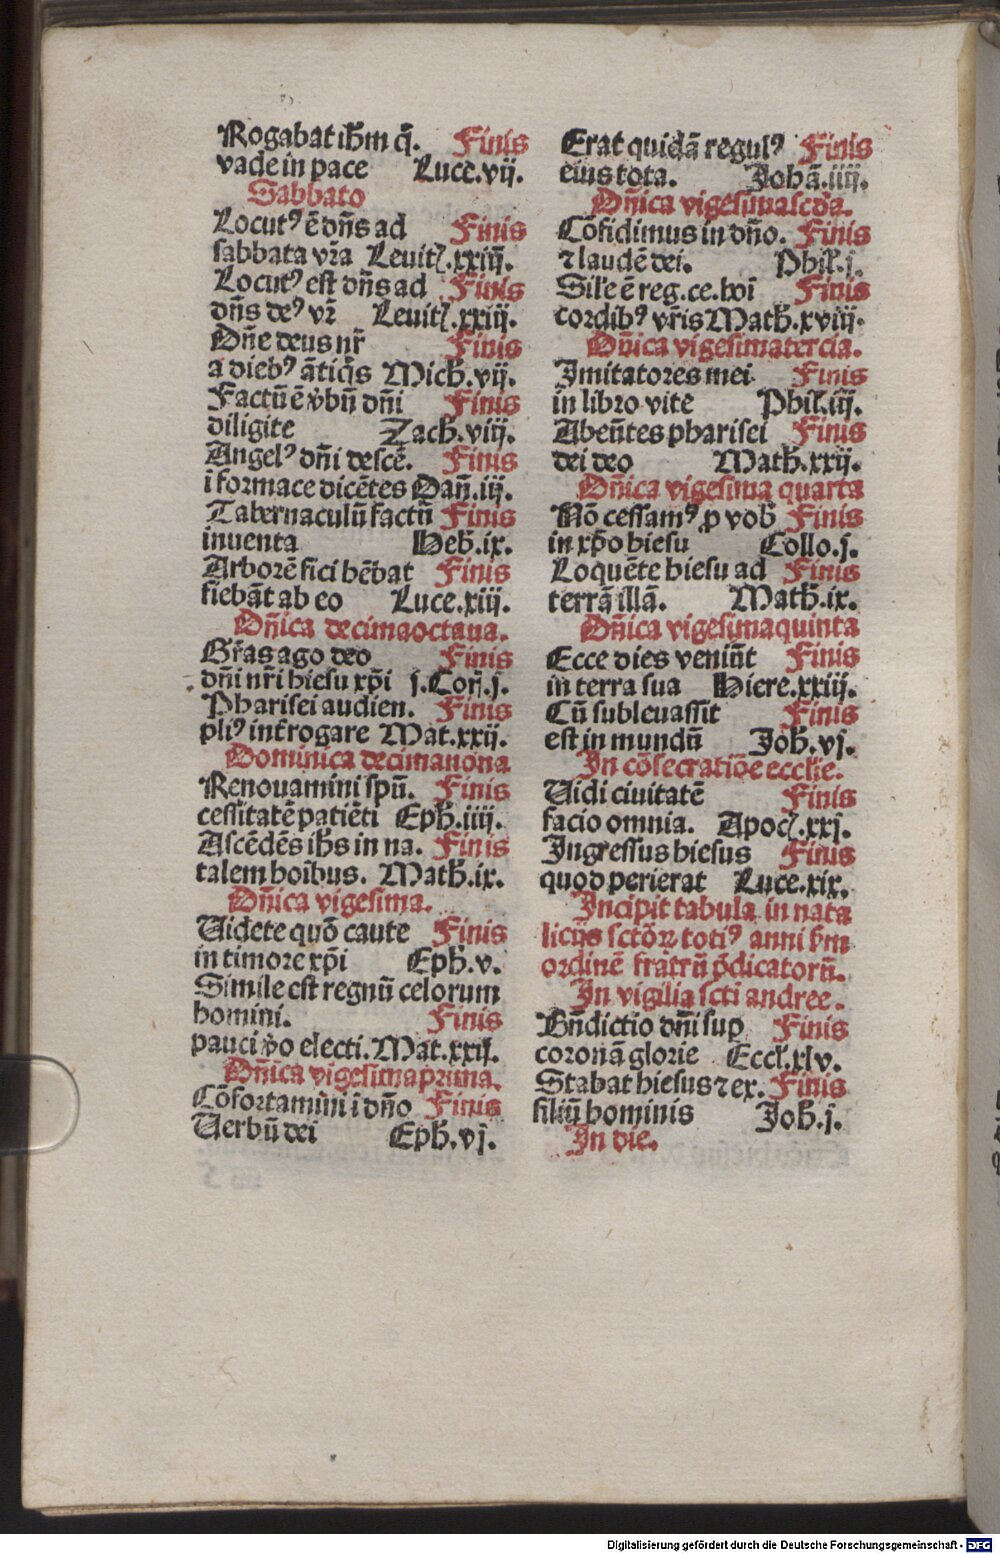 Rogabat ih̄m q̄. Finis
vade in pace Luce.vij.
Sabbato
Locutꝰ ē dn̄s ad Finis
sabbata vr̄a Leuitꝭ.xxiij.
Locutꝰ est dn̄s ad Finis
dn̄s deꝰ vr̄ Leuitꝭ.xxiij.
Dn̄e deus nr̄ Finis
a diebꝰ ātiq̄s Mich̄.vij.
Factū ē v̄bū dn̄i Finis
diligite Zach̄.viij.
Angelꝰ dn̄i descē. Finis
i fornace dicētes Dan̄.iij.
Tabernaculū factū Finis
inuenta Heb̄.ix.
Arborē fici hēbat Finis
fiebāt ab eo Luce.xiij.
Dn̄ica decimaoctaua.
Gr̄as ago deo Finis
dn̄i nr̄i hiesu xp̄i j.Corꝭ.j.
Pharisei audien. Finis
pliꝰ int̄rogare Mat.xxij.
Dominica decimanona
Renouamini spū. Finis
cessitatē patiēti Eph̄.iiij.
Ascēdēs ih̄s in na. Finis
talem hoībus. Math̄.ix.
Dn̄ica vigesima.
Uidete quō caute Finis
in timore xp̄i Eph̄.v.
Simile est regnū celorum
homini. Finis
pauci v̄o electi. Mat.xxij.
Dn̄ica vigesimaprima.
Cōfortamini ī dn̄o Finis
Uerbū dei Eph̄.vj.
Erat quidā regulꝰ Finis
eius tota. Johā.iiij.
Dn̄ica vigesimascd̄a.
Cōfidimus in dn̄o. Finis
⁊ laudē dei. Phil̄.j.
Sil'e ē reg.ce.hoī Finis
cordibꝰ vr̄is Math̄.xviij.
Dn̄ica vigesimatercia.
Imitatores mei Finis
in libro vite Phil̄.iij.
Abeūtes pharisei Finis
dei deo Math̄.xxij.
Dn̄ica vigesima quarta
Nō cessamꝰ ꝓ vob̄ Finis
in xp̄o hiesu Collo.j.
Loquēte hiesu ad Finis
terrā illā. Math̄.ix.
Dn̄ica vigesimaquinta
Ecce dies veniūt Finis
in terra sua Hiere.xxiij.
Cū subleuassit Finis
est in mundū Joh̄.vj.
In cōsecratiōe eccl'ie.
Uidi ciuitatē Finis
facio omnia. Apocꝭ.xxj.
Ingressus hiesus Finis
quod perierat Luce.xix.
Incipit tabula in nata
licijs sctōꝝ totiꝰ anni fm
ordinē fratrū p̄dicatorū.
In vigilia scti andree.
Bn̄dictio dn̄i suꝑ Finis
coronā glorie Eccl̄.xlv.
Stabat hiesus ⁊ ex. Finis
filiū hominis Joh̄.j.
In die.
Digitalisierung gefördert durch die Deutsche Forschungsgemeinschaft - DFG